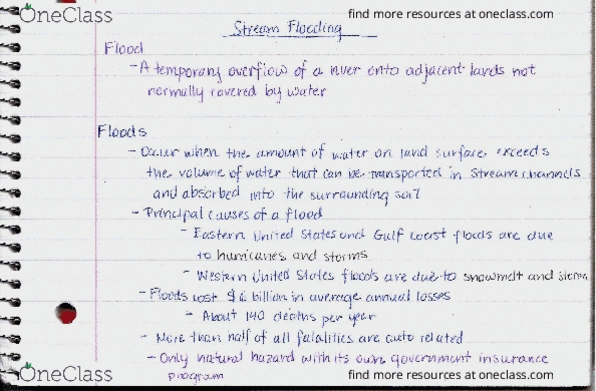 OneClass
find more resources at oneclass.com
Stream Flooding
Flood
- A temporary overflow of a river onto adjacent lands not
normally covered by water
Floods
- Occur when the amount of water on land surface exceeds
the volume of water that can be transported in stream channels
and absorbed into the surrounding soil
- Principal causes of a flood
- Eastern United States and Gulf coast floods are due
to hurricanes and storms
- Western United States floods are due to snowmelt and storms
- Floods cost $6 billion in average annual losses
- About 140 deaths per year
- More than half of all fatalities are auto related
- Only natural hazard with its own government insurance
program
OneClass
find more resources at oneclass.com